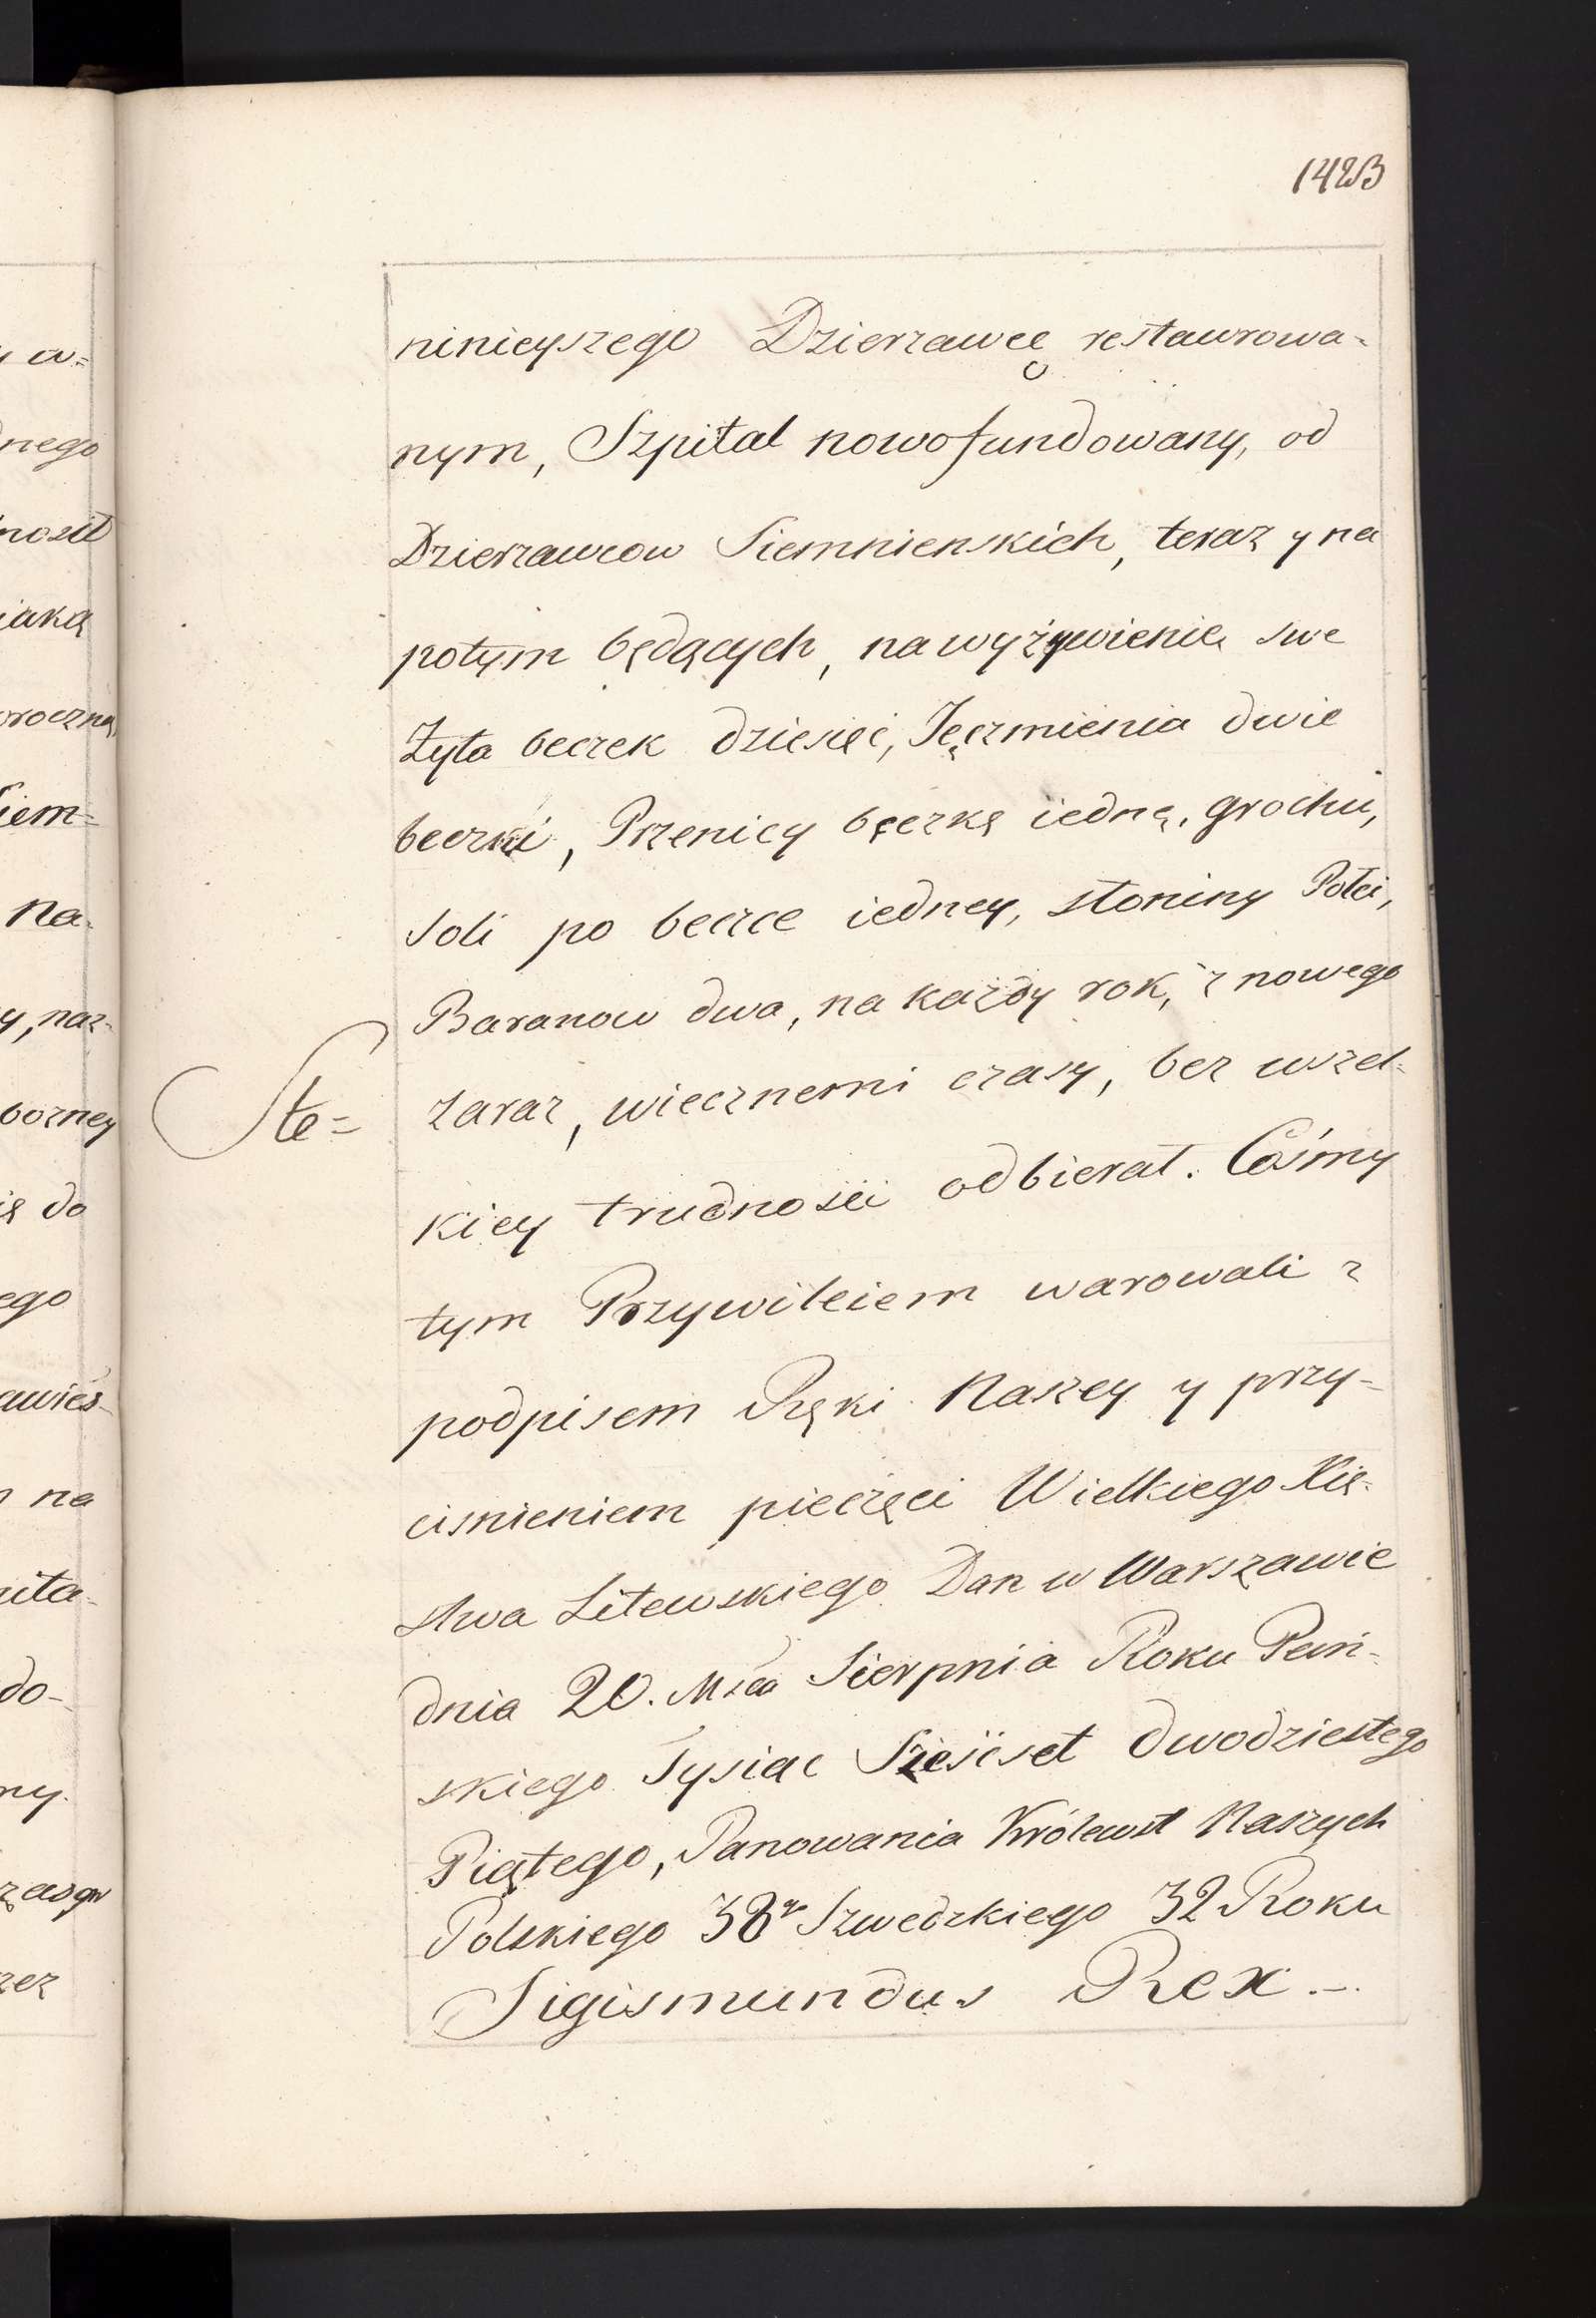 1423
ninieyszego Dzierzawcę restawrowa-
nym, Szpital nowofundowany, od
Dzierzawcow Siemnienskich, teraz y na
potym będących, na wyżywienie swe
Żyta beczek dziesięć, Jęczmienia dwie
beczki, Przenicy bęczkę iedną, grochu,
soli po beczce iedney, słoniny Połci,
Baranow dwa, na każdy rok, z nowego
Ste= zaraz, wiecznemi czasy, bez wszel-
kiey trudnosci odbierał. Cośmy
tym Przywileiem warowali z
podpisem Ręki Naszey y przy-
cisnieniem pieczęci Wielkiego Xię-
stwa Litewskiego Dan w Warszawie
dnia 20. Msca Sierpnia Roku Pań-
skiego Tysiąc Sześćset dwodziestego
Piątego, Panowania Królewst Naszych
Polskiego 38go Szwedzkiego 32 Roku
Sigismundus Rex.-.
a=
nego
nosił
iaką
oroczną,
Siem=
na
y, naz-
borney
ię do
ego
awies-
na
uita-
do-
ny.
zez